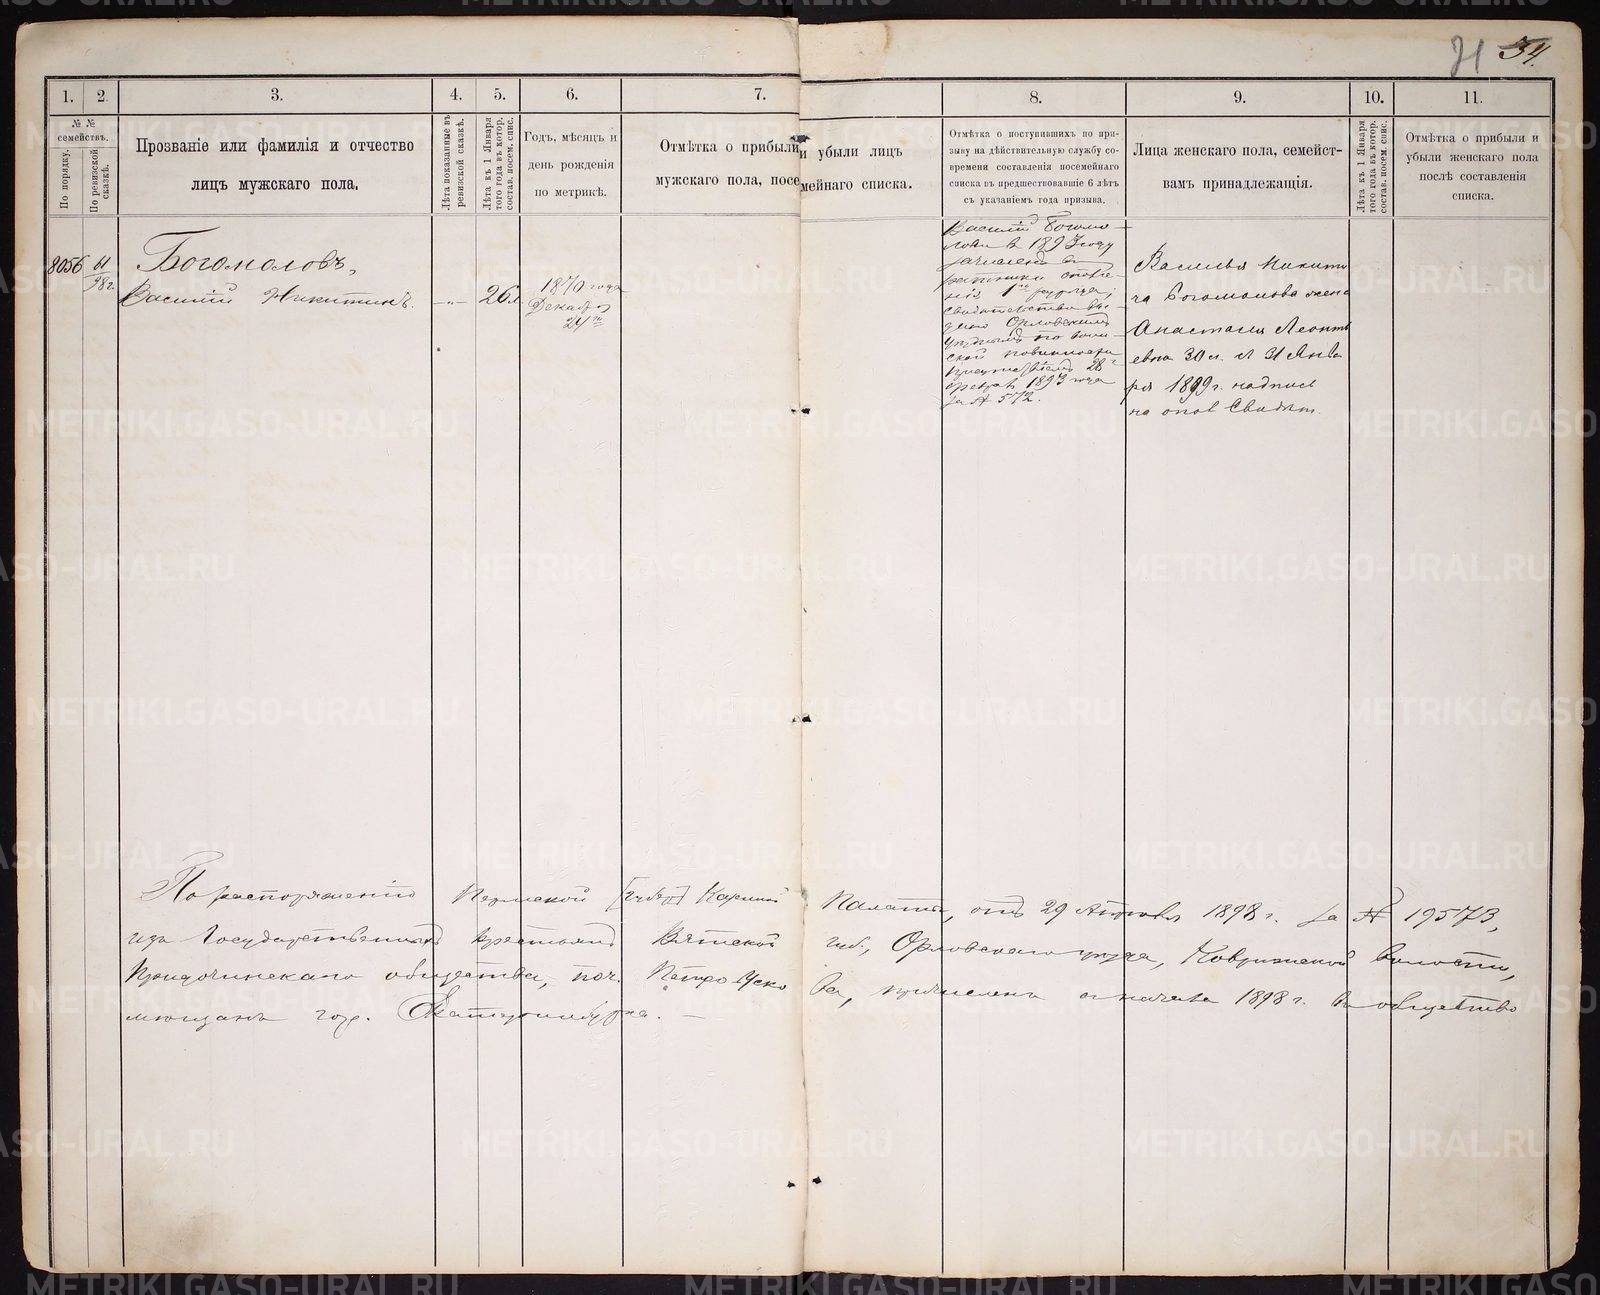 21 34.
1. 2. 3. 4. 5. 6. 7. 8. 9. 10. 11.
№ №
семействъ.
По порядку.
По ревизской сказкѣ.
Прозваніе или фамилія и отчество
лицъ мужскаго пола.
Лѣта показанные въ
ревизской сказкѣ.
Лѣта къ 1 Января
того года въ котор.
состав. посем. спис.
Годъ, мѣсяцъ и
день рожденія
по метрикѣ.
Отмѣтка о прибыли и убыли лицъ
мужскаго пола, посемейнаго списка.
Отмѣтка о поступившихъ по при-
зыву на дѣйствительную службу со-
времени составленія посемейнаго
списка въ предшествовавшіе 6 лѣтъ
съ указаніемъ года призыва.
Лица женскаго пола, семейст-
вамъ принадлежащія.
Лѣта къ 1 Января
того года въ котор.
состав. посем. спис.
Отмѣтка о прибыли и
убыли женскаго пола
послѣ составленія
списка.
8056 61/98 г.
Богомоловъ,
Василій Никитинъ. —„— 26 л.
1870 года
Декабря
24го
Василій Богомо-
ловъ въ 1893 году
зачисленъ въ
ратники ополче-
нія 1го разряда,
свидѣтельство вы-
дано Орловскимъ
уѣзднымъ по воин-
ской повинности
присутствіемъ 28
февр. 1893 года
за № 572.
Василья Никити
ча Богомолова жена
Анастасія Леонть
евна 30 л. 31 Янва
ря 1899 г. надпись
на Свидѣт.
По распоряженію Пермской [Губер] Казенной Палаты, отъ 29 Апрѣля 1898 г. за № 19573,
изъ Государственныхъ крестьянъ Вятской губ., Орловскаго уѣзда, волости,
общества, поч. причисленъ съ начала 1898 г. въ общество
мѣщанъ гор. Екатеринбурга. —
METRIKI.GASO-URAL.RU